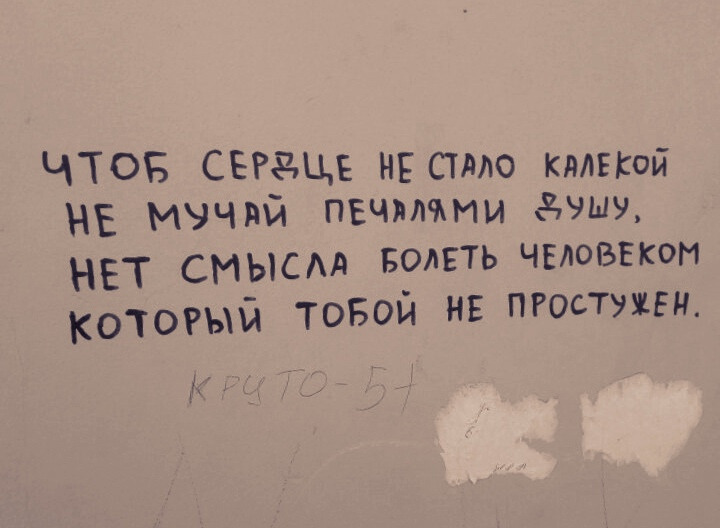 ЧТОБ СЕРДЦЕ НЕ СТАЛО КАЛЕКОЙ
НЕ МУЧАЙ ПЕЧАЛЯМИ ДУШУ,
НЕТ СМЫСЛА БОЛЕТЬ ЧЕЛОВЕКОМ
КОТОРЫЙ ТОБОЙ НЕ ПРОСТУЖЕН.
КРУТО-5+